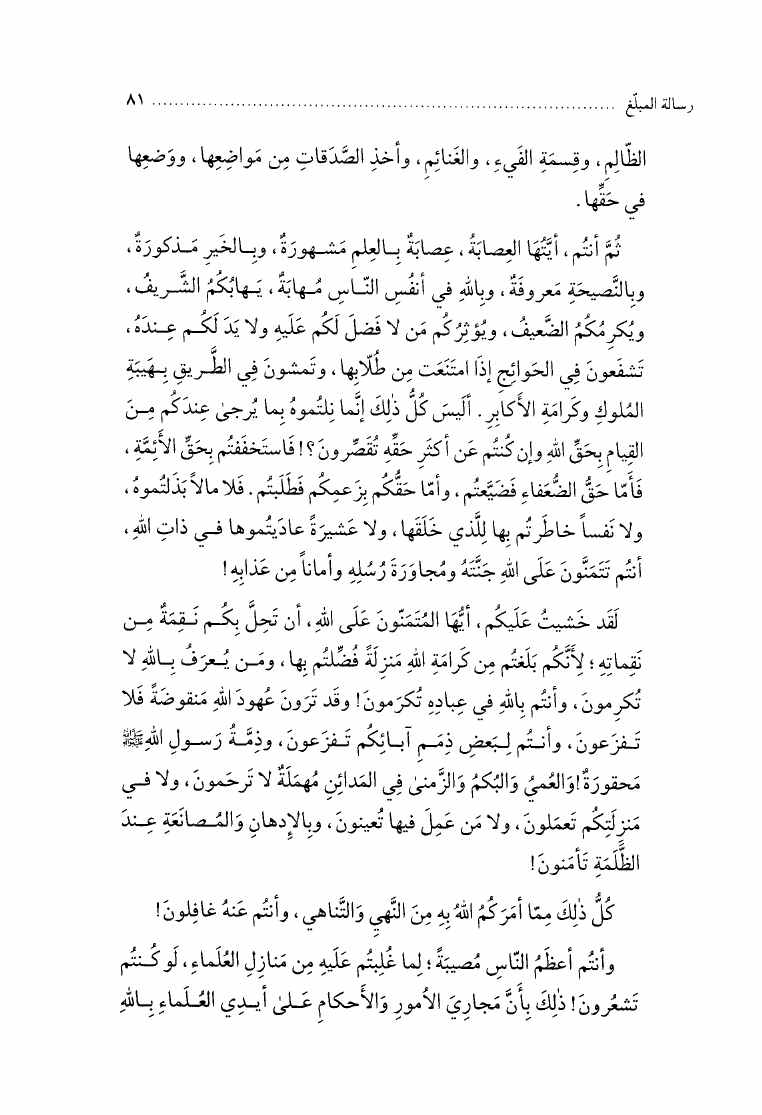 رسالة المبلّغ ........................................................................ ٨١
الظّالِمِ، وقِسمَةِ الفَيءِ، والغَنائِمِ، وأخذِ الصَّدَقاتِ مِن مَواضِعِها، ووَضعِها
في حَقِّها.
ثُمَّ أنتُم، أيَّتُهَا العِصابَةُ، عِصابَةٌ بِالعِلمِ مَشهورَةٌ، وبِالخَيرِ مَذكورَةٌ،
وبِالنَّصيحَةِ مَعروفَةٌ، وبِاللهِ في أنفُسِ النّاسِ مُهابَةٌ، يَهابُكُمُ الشَّريفُ،
ويُكرِمُكُمُ الضَّعيفُ، ويُؤثِرُكُم مَن لا فَضلَ لَكُم عَلَيهِ ولا يَدَ لَكُم عِندَهُ،
تَشفَعونَ فِي الحَوائِجِ إذَا امتَنَعَت مِن طُلّابِها، وتَمشونَ فِي الطَّريقِ بِهَيبَةِ
المُلوكِ وكَرامَةِ الأكابِرِ. ألَيسَ كُلُّ ذٰلِكَ إنَّما نِلتُموهُ بِما يُرجىٰ عِندَكُم مِنَ
القِيامِ بِحَقِّ اللهِ وإن كُنتُم عَن أكثَرِ حَقِّهِ تُقَصِّرونَ؟! فَاستَخفَفتُم بِحَقِّ الأَئِمَّةِ،
فَأَمّا حَقُّ الضُّعَفاءِ فَضَيَّعتُم، وأمّا حَقُّكُم بِزَعمِكُم فَطَلَبتُم. فَلا مالاً بَذَلتُموهُ،
ولا نَفساً خاطَرتُم بِها لِلَّذي خَلَقَها، ولا عَشيرَةً عادَيتُموها في ذاتِ اللهِ،
أنتُم تَتَمَنَّونَ عَلَى اللهِ جَنَّتَهُ ومُجاوَرَةَ رُسُلِهِ وأماناً مِن عَذابِهِ!
لَقَد خَشيتُ عَلَيكُم، أيُّهَا المُتَمَنّونَ عَلَى اللهِ، أن تَحِلَّ بِكُم نَقِمَةٌ مِن
نَقِماتِهِ؛ لِأَنَّكُم بَلَغتُم مِن كَرامَةِ اللهِ مَنزِلَةً فُضِّلتُم بِها، ومَن يُعرَفُ بِاللهِ لا
تُكرِمونَ، وأنتُم بِاللهِ في عِبادِهِ تُكرَمونَ! وقَد تَرَونَ عُهودَ اللهِ مَنقوضَةً فَلا
تَفزَعونَ، وأنتُم لِبَعضِ ذِمَمِ آبائِكُم تَفزَعونَ، وذِمَّةُ رَسولِ اللهِ ﷺ
مَحقورَةٌ! وَالعُميُ وَالبُكمُ وَالزَّمنىٰ فِي المَدائِنِ مُهمَلَةٌ لا تَرحَمونَ، ولا في
مَنزِلَتِكُم تَعمَلونَ، ولا مَن عَمِلَ فيها تُعينونَ، وبِالإدهانِ وَالمُصانَعَةِ عِندَ
الظَّلَمَةِ تَأمَنونَ!
كُلُّ ذٰلِكَ مِمّا أمَرَكُمُ اللهُ بِهِ مِنَ النَّهيِ وَالتَّناهي، وأنتُم عَنهُ غافِلونَ!
وأنتُم أعظَمُ النّاسِ مُصيبَةً؛ لِما غُلِبتُم عَلَيهِ مِن مَنازِلِ العُلَماءِ، لَو كُنتُم
تَشعُرونَ! ذٰلِكَ بِأَنَّ مَجارِيَ الاُمورِ وَالأَحكامِ عَلىٰ أيدِي العُلَماءِ بِاللهِ